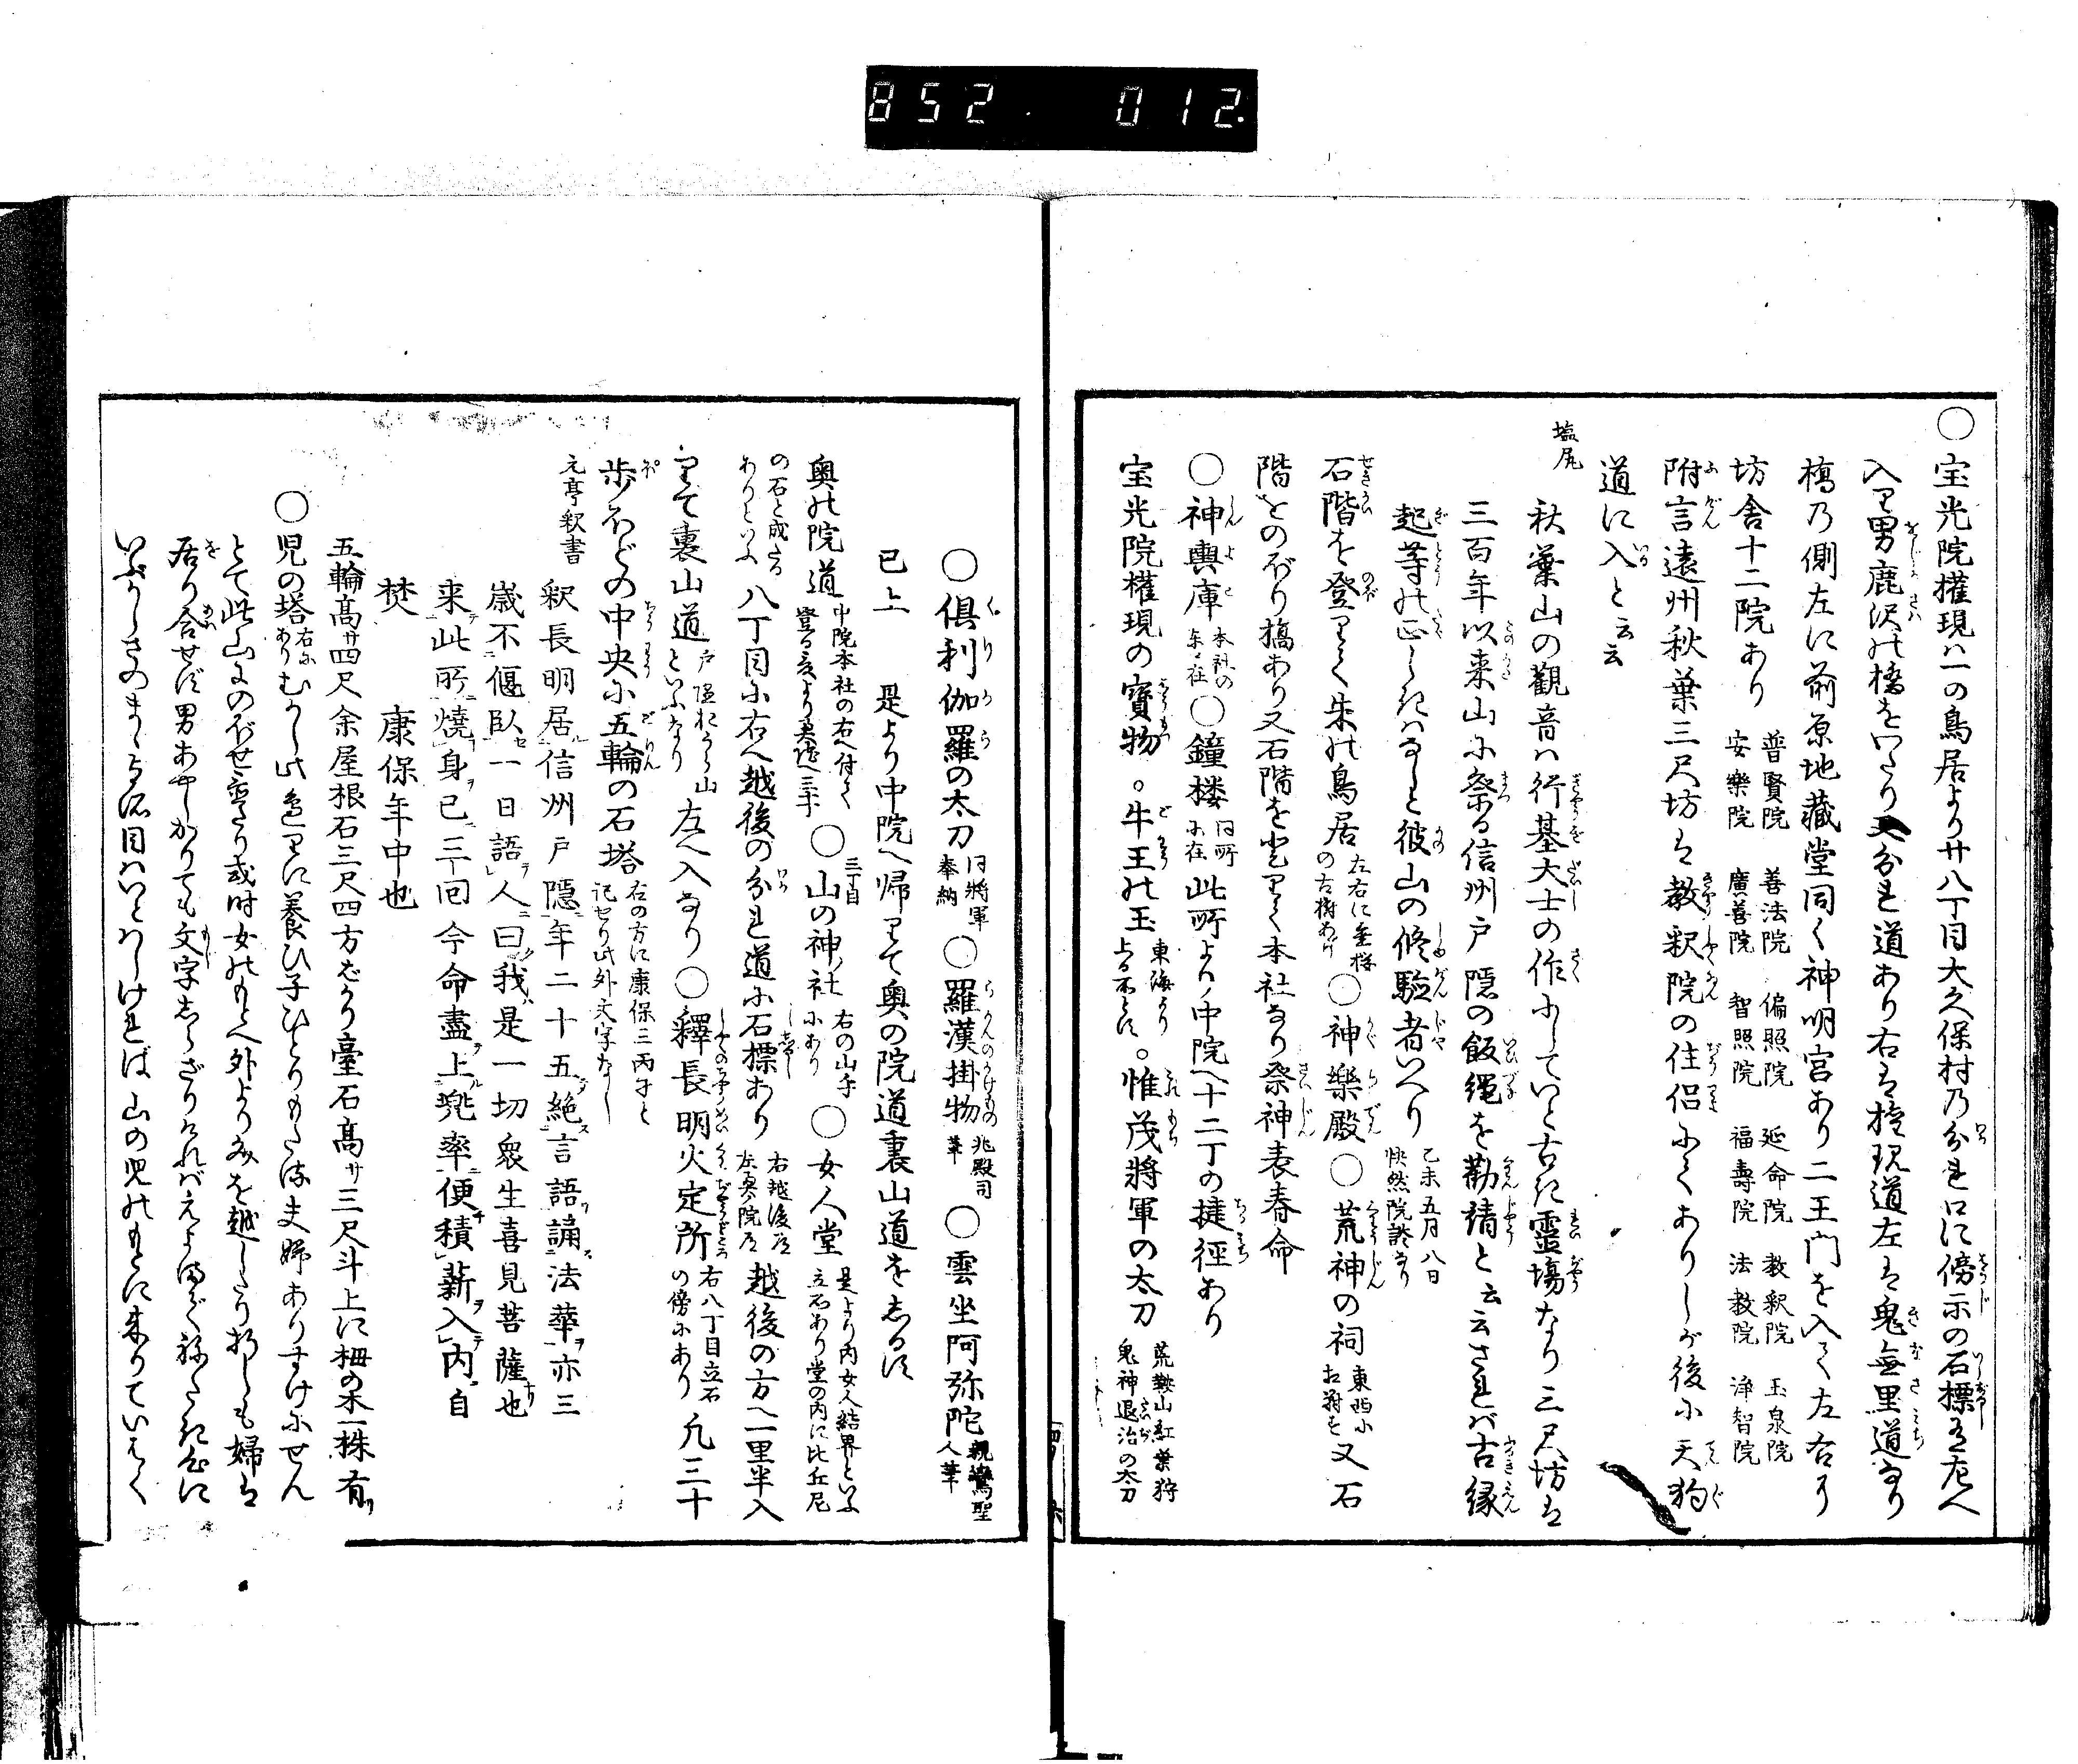 852. 012.
○宝光院権現ハ一の鳥居より廿八丁目大久保村乃分れ口に傍示の石標を左へ
入て男鹿沢の橋をわたり又分れ道あり右は権現道左は鬼無里道なり
橋乃側左に前原地蔵堂同く神明宮あり二王門を入て左右に
坊舎十二院あり 普賢院 善法院 偏照院 延命院 教釈院 玉泉院
安楽院 廣善院 智照院 福壽院 法教院 浄智院
附言遠州秋葉三尺坊は教釈院の住侶にてありしが後に天狗
道に入と云云
塩尻
秋葉山の觀音ハ行基大士の作にしていと古き靈場なり三尺坊は
三百年以来山に祭る信州戸隠の飯縄を勧請と云云されば古縁
起等の正しきハなしと彼山の修驗者いへり 乙未五月八日
快然院談なり
石階を登りて朱の鳥居 左右に
の古樹あり ○神樂殿 ○荒神の祠 東西に
又石
階をのぼり橋あり又石階を登りて本社なり祭神表春命
○神輿庫 本社の
東に在 ○鐘楼 同所
に在 此所より中院へ十二丁の捷径あり
宝光院権現の寶物 。牛王の玉 東海より
上る所といふ 。惟茂將軍の太刀 荒鞍山紅葉狩
鬼神退治の太刀
○倶利伽羅の太刀 同將軍
奉納 ○羅漢掛物 兆殿司
筆 ○雲坐阿弥陀 親鸞聖
人筆
已上 是より中院へ帰りて奥の院道裏山道をしるす
奥の院道 中院本社の右へ付て
登る是より奥院へ三十丁 ○ 三丁目 山の神ノ社 右の山手
にあり ○女人堂 是より内女人結界といふ
立石あり堂の内に比丘尼
の石と成たる
ありといふ 八丁目に右へ越後の分れ道に石標あり 右越後道
左奥院道 越後の方へ一里半入
りて裏山道といふなり 左へ入なり ○釋長明火定所 右八丁目立石
の傍にあり 凡三十
歩ほどの中央に五輪の石塔 右の方に康保三丙寅と
記せり此外文字なし
元亨釈書
釈長明居信州戸隠年二十五絶言語誦法華亦三
歳不偃臥一日語人曰我是一切衆生喜見菩薩也
来此所燒身已三回今命盡上兠率便積薪入内自
焚 康保年中也
五輪高サ四尺余屋根石三尺四方ばかり臺石高サ三尺斗上に栂の木一株有
○児の塔 右に
あり むかし此邑里に養ひ子ひとりもたる夫婦ありすけにせん
とて此山にのぼせ置たり或時女のもとへ外よりふみを越したり折しも婦は
居り合せず男あやしがりても文字しらざりければえよまず

いぶかしさのまゝよ 目ハいとハしければ山の児のもとに来りていはく